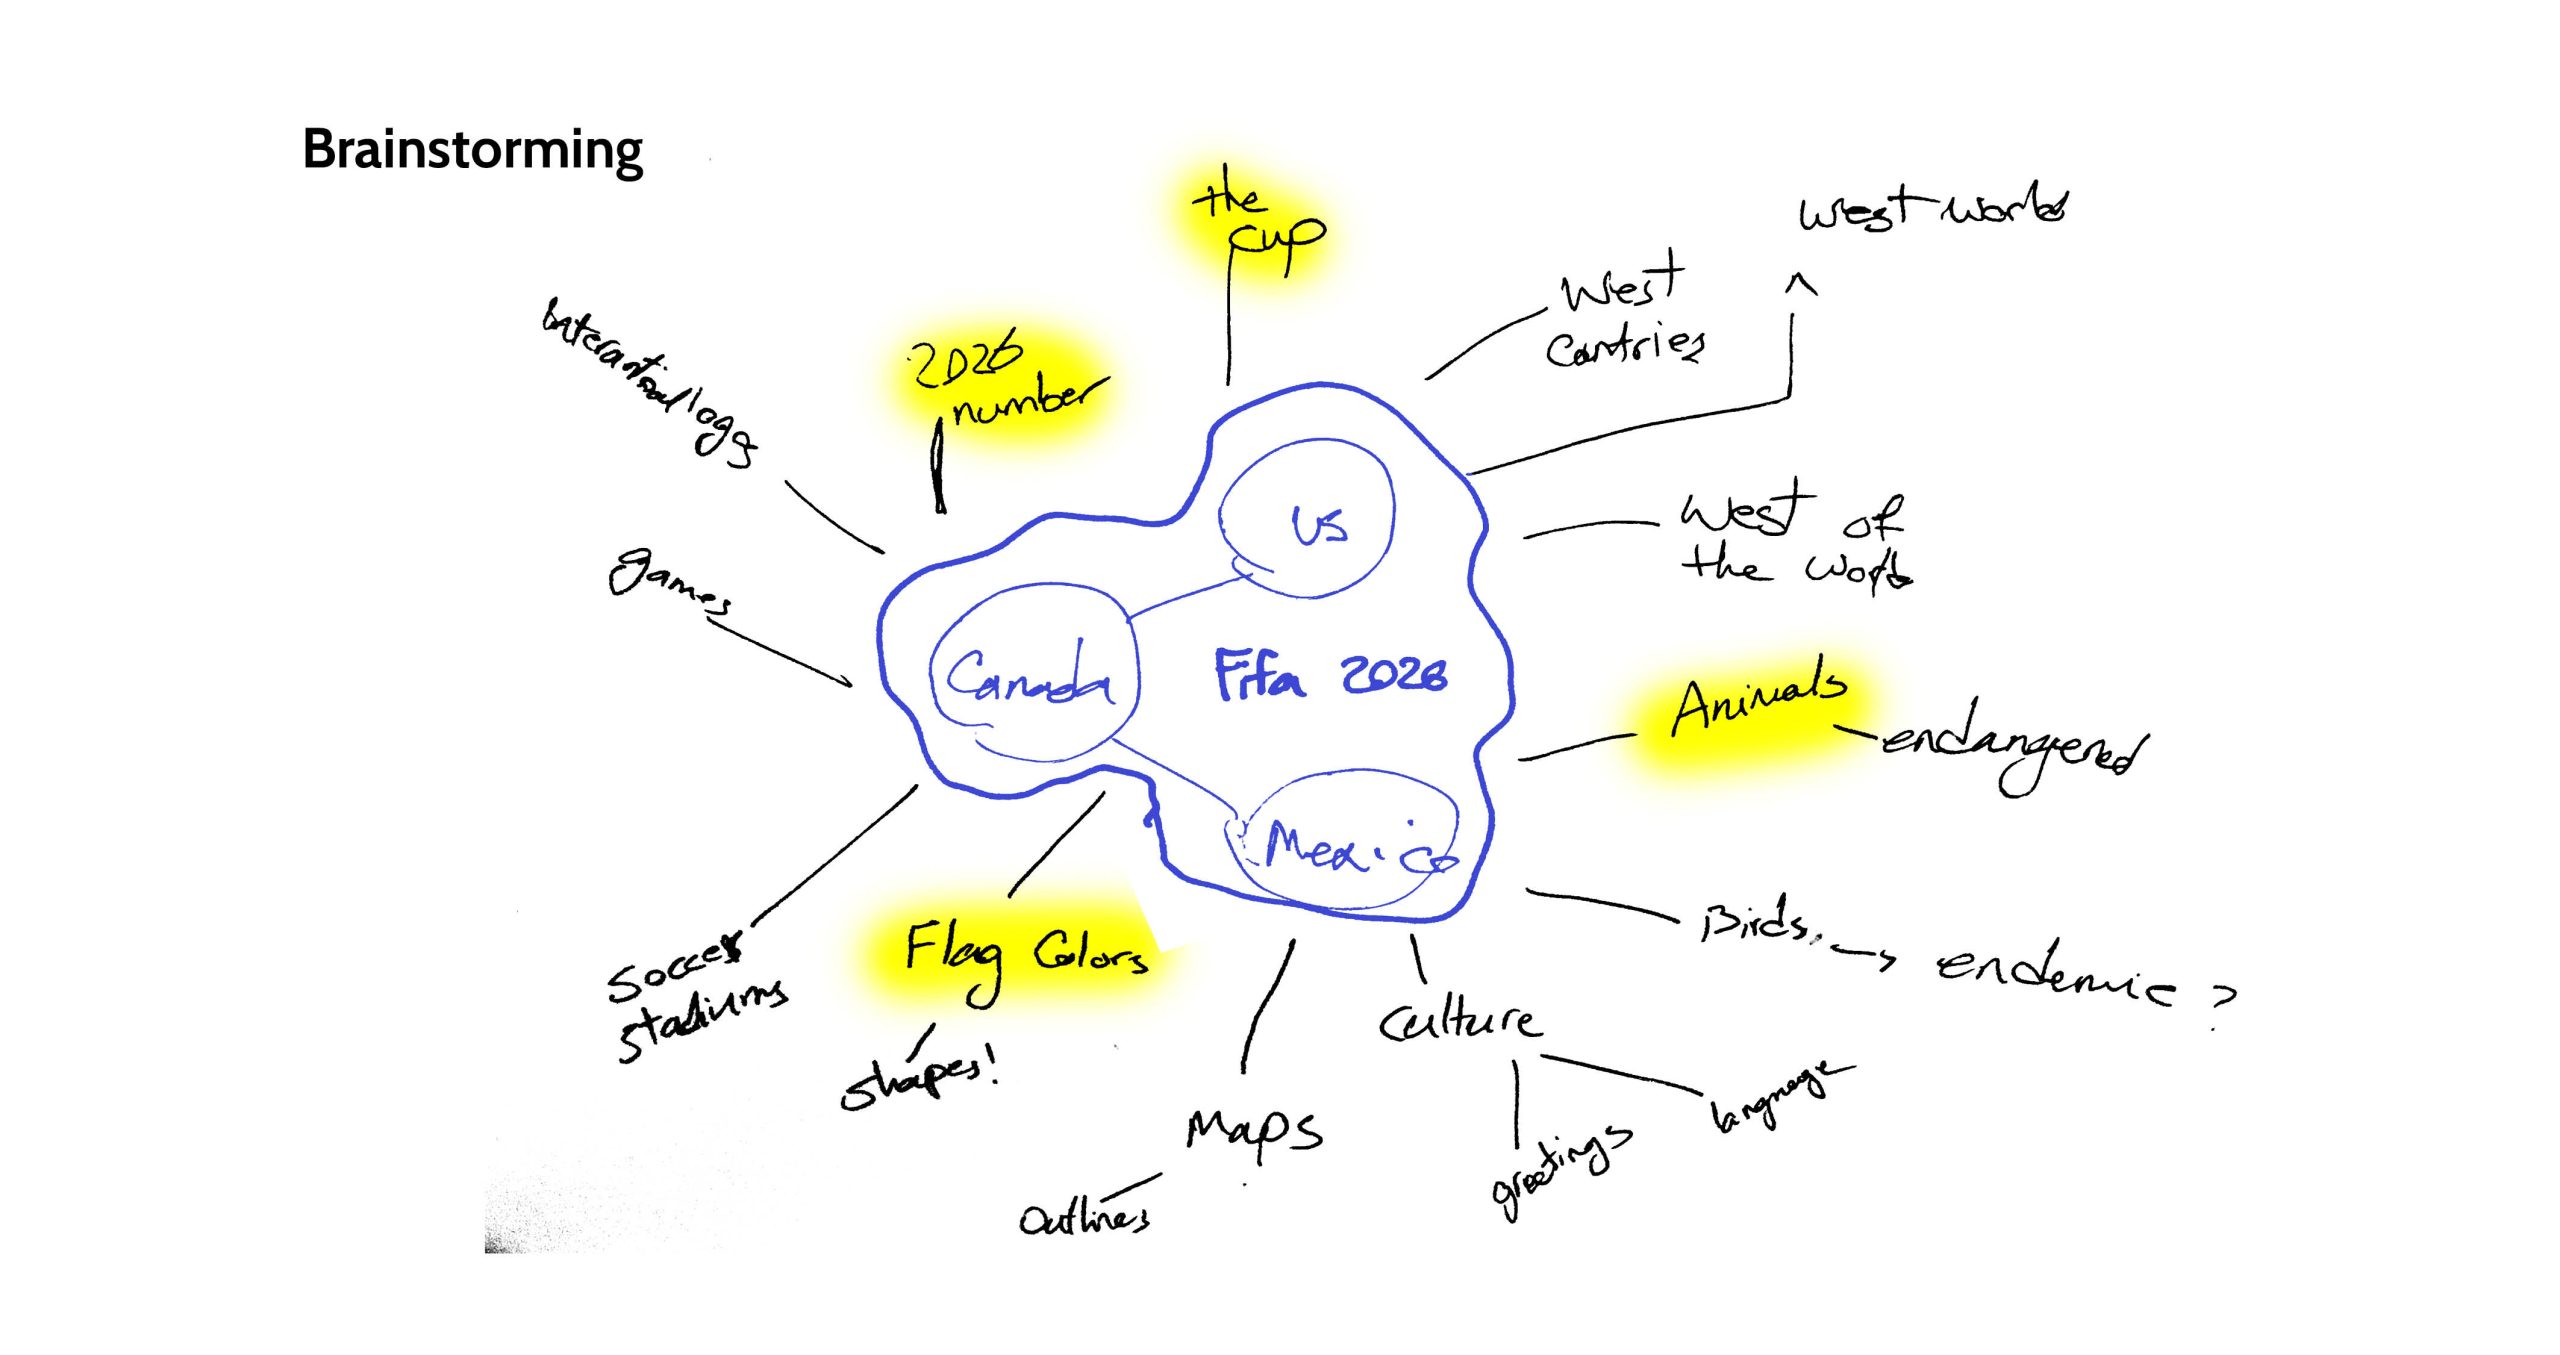 Brainstorming
the
cup
west world
West
Cantries
2026
number
interantional logs
games
US
West of
the world
Canada
Fifa 2026
Animals
endangered
Mexico
Birds
endemic ?
Flag Colors
shapes!
Soccer
stadiums
Culture
language
greetings
Maps
Outlines